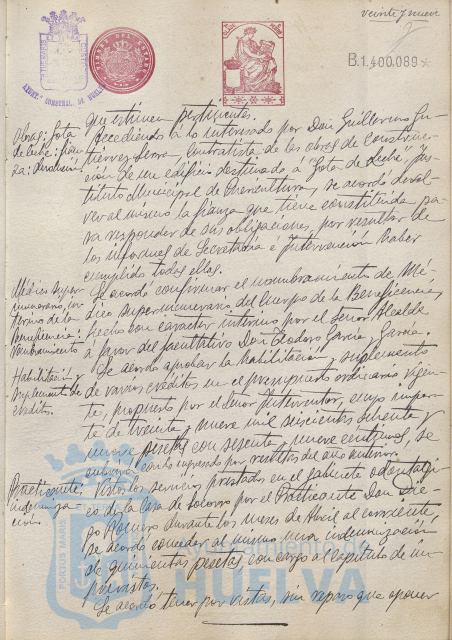 veinte y nueve
B.1,400,089
AYUNT. CONSTNAL. DE HUELVA
que estimen pertinentes.
Obras: Gota
de Leche: fian-
za: devolución
Accediendo a lo interesado por Don Guillermo Gu-
tiérrez Serra, Contratista de las obras de construc-
ción de un edificio destinado á "Gota de Leche" Ins-
tituto Municipal de Puericultura, se acordó devol-
ver al mismo la fianza que tiene constituida pa-
ra responder de sus obligaciones, por resultar de
los informes de Secretaria é Intervención haber
cumplido todas ellas.
Médico super-
numerario, in-
terino de la
Beneficencia:
Nombramiento
Se acordó confirmar el nombramiento de Mé-
dico supernumerario del Cuerpo de la Beneficencia,
hecho con caracter interino por el Señor Alcalde
á favor del facultativo Don Teodoro García y García.
Habilitación y
suplemento de
creditos.
Se acordó aprobar la habilitación y suplemento
de varios creditos en el presupuesto ordinario vigen-
te, propuesto por el Señor Interventor, cuyo impor-
te de treinta y nueve mil seiscientas ochenta y
nueve pesetas con sesenta y nueve centimos, se
cubrirá con lo ingresado por resultas del año anterior.
Practicante:
indemniza-
ción
Vistos los servicios prestados en el gabinete odontológi-
co de la Casa de Socorro por el Practicante Don Die-
go Romero durante los meses de Abril al corriente,
se acordó conceder al mismo una indemnización
de quinientas pesetas, con cargo al capítulo de im-
previstos.
Se acordó tener por vistas, sin reparo que oponer
PORTUS MARIS
Ayuntamiento de
HUELVA